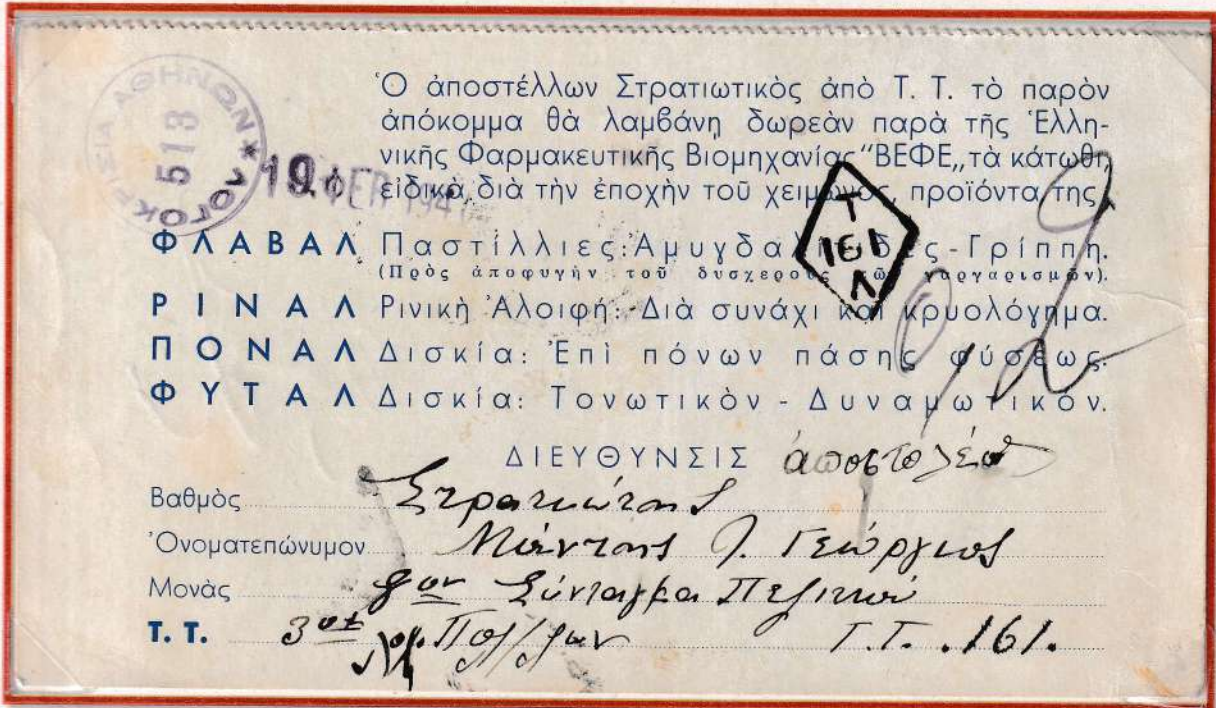 Ὁ ἀποστέλλων Στρατιωτικὸς ἀπὸ Τ. Τ. τὸ παρὸν
ἀπόκομμα θὰ λαμβάνη δωρεὰν παρὰ τῆς Ἑλλη-
νικῆς Φαρμακευτικῆς Βιομηχανίας "ΒΕΦΕ,, τὰ κάτωθι
εἰδικὰ διὰ τὴν ἐποχὴν τοῦ χειμῶνος, προϊόντα της.
ΛΟΓΟΚΡΙΣΙΑ ΑΘΗΝΩΝ *
513
19. ΦΕΒ 194
Τ
161
Λ
ΦΛΑΒΑΛ Παστίλλιες: Ἀμυγδαλίτιδες - Γρίππη.
(Πρὸς ἀποφυγὴν τοῦ δυσχεροῦς τῶν γαργαρισμῶν).
ΡΙΝΑΛ Ρινικὴ Ἀλοιφή: Διὰ συνάχι καὶ κρυολόγημα.
ΠΟΝΑΛ Δισκία: Ἐπὶ πόνων πάσης φύσεως.
ΦΥΤΑΛ Δισκία: Τονωτικὸν - Δυναμωτικόν.
ΔΙΕΥΘΥΝΣΙΣ ἀποστολέως
Βαθμὸς Στρατιώτης
Ὀνοματεπώνυμον Γεώργιος
Μονὰς 8ον Σύνταγμα Πεζικοῦ
Τ. Τ. 3ος Τ.Τ. 161.